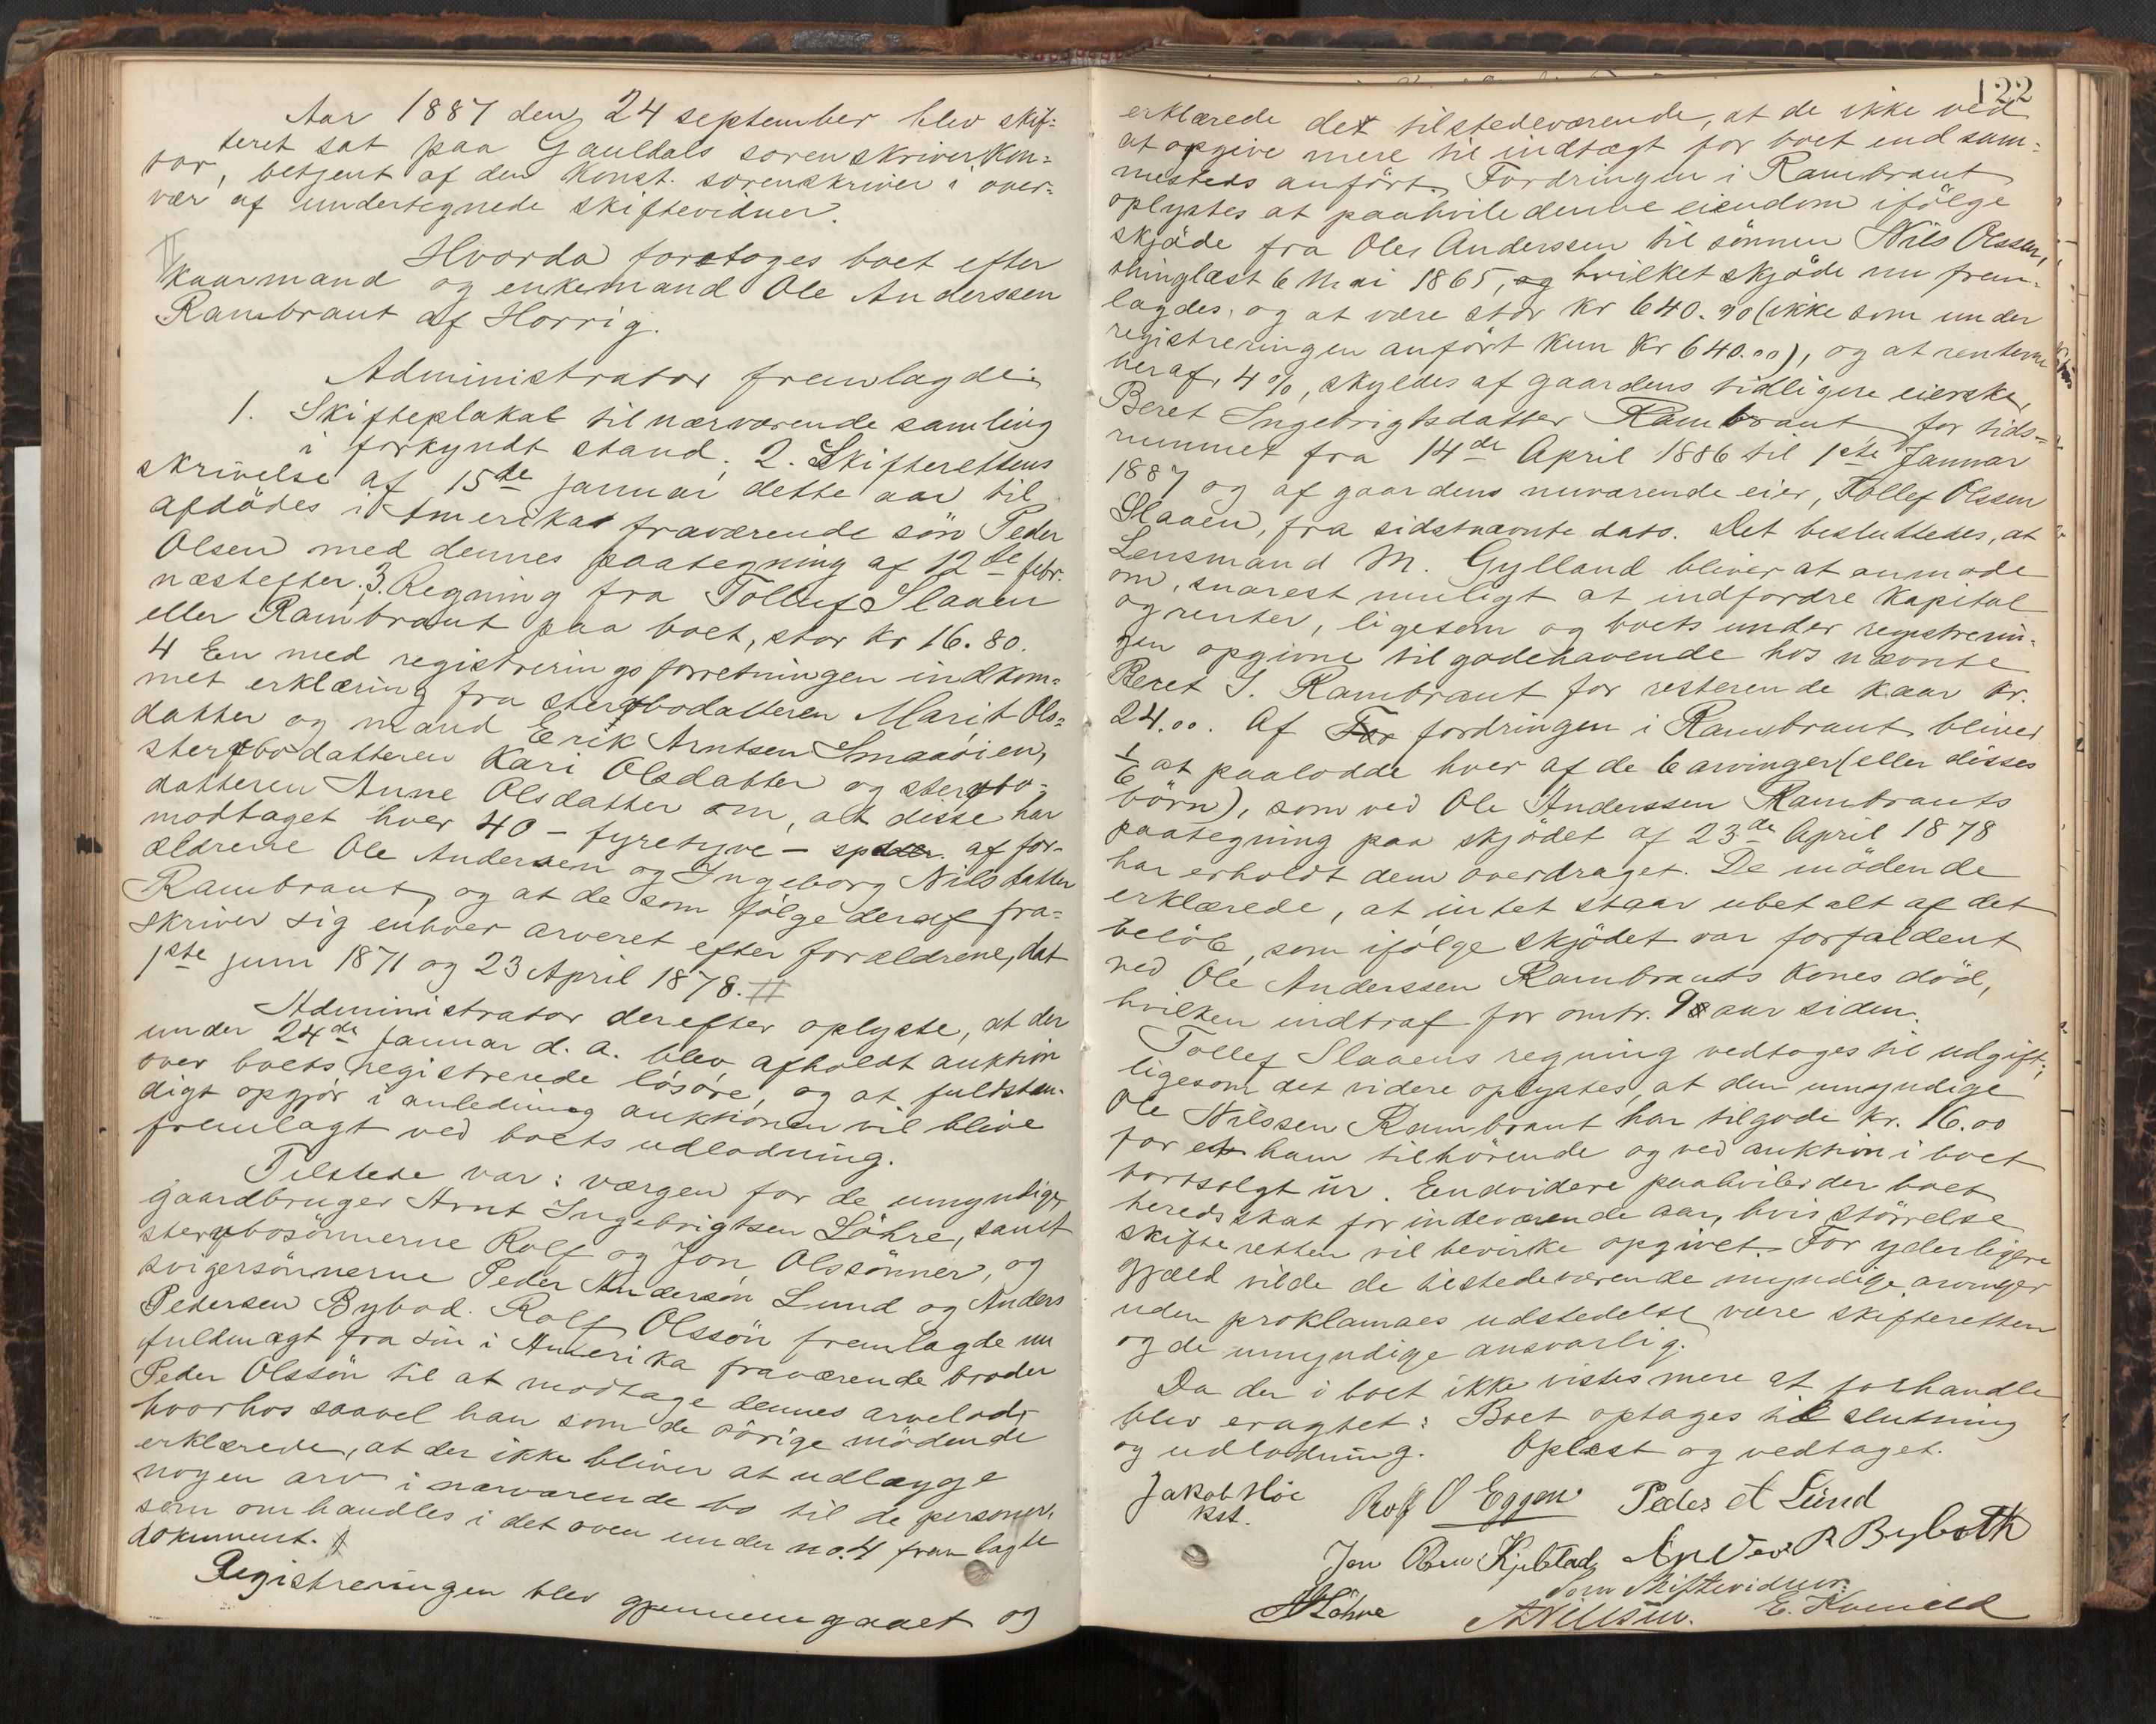 Aar 1887 den 24 september blev skif=
teret sat paa Gauldals sorenskriverkon=
tor, betjent af den konst. sorenskriver i over=
vær af undertegnede skiftevidner.
Hvorda foretoges boet efter
kaarmand og enkemand Ole Anderssen
Rambraut af Horrig.
Administrator fremlagde:
1. Skifteplakat til nærværende samling
i forkyndt stand. 2. Skifterettens
skrivelse af 15de januar dette aar til
afdödes i Amerika fraværende sön Peder
Olsen med dennes paategning af 12te febr.
næstefter. 3. Regning fra Tollef Slaaen
eller Rambraut paa boet, stor kr 16.80.
4 En med registreringsforretningen indkom=
met erklæring fra sterbodatteren Marit Ols=
datter og mand Erik Arntsen Smaaöien,
sterbodatteren Kari Olsdatter og sterbo=
datteren Anne Olsdatter om, at disse har
modtaget hver 40 - fyretyve - spdlr. af for-
ældrene Ole Andersen og Ingeborg Nilsdatter
Rambraut, og at de som fölge deraf fra=
skriver sig enhver arveret efter forældrene, dat
1ste juni 1871 og 23 April 1878. #
Administrator derefter oplyste, at der
under 24de Januar d. a. blev afholdt auktion
over boets registrerede lösöre, og at fuldstæn-
digt opgjör i anledning auktionen vil blive
fremlagt ved boets udlodning.
Tilstede var: værgen for de umyndige
gaardbruger Arnt Ingebrigtsen Löhre, samt
sterbosönnerne Rolf og Jon Olssönner, og
svigersönnerne Peder Andersön Lund og Anders
Pedersen Bybod. Rolf Olssön fremlagde nu
fuldmagt fra sin i Amerika fraværende broder
Peder Olssön til at modtage dennes arvelod,
hvorhos saavel han som de övrige mödende
erklærede, at der ikke bliver at udlægge
nogen arv i nærværende bo til de personer,
som omhandles i det oven under no. 4 fremlagte
dokument.
Registreringen blev gjennemgaaet og
122
erklærede de tilstedeværende, at de ikke ved
at opgive mere til indtægt for boet end sam=
mesteds anfört. Fordringen i Rambraut
oplystes at paahvile denne eiendom ifölge
skjöde fra Ole Anderssen til sönnen Nils Olssen,
thinglæst 6 Mai 1865, og hvilket skjöde nu frem-
lagdes, og at være stor kr 640.90 (ikke som under
registreringen anfört kun kr 640.00), og at renterne
heraf, 4 %, skyldes af gaardens tidligere eierske,
Beret Ingebrigtsdatter Rambraut for tids=
rummet fra 14de April 1886 til 1ste Januar
1887 og af gaardens nuværende eier, Tollef Olssen
Slaaen, fra sidstnævnte dato. Det besluttedes, at
Lensmand M. Gylland bliver at anmode
om, snarest muligt at indfordre kapital
og renter, ligesom og boets under registrerin-
gen opgivne tilgodehavende hos nævnte
Beret I. Rambraut for resterende kaar kr.
24.00. Af For fordringen i Rambraut bliver
1/6 at paalodde hver af de 6 arvinger (eller disses
börn), som ved Ole Anderssen Rambrauts
paategning paa skjödet af 23de April 1878
har erholdt dem overdraget. De mödende
erklærede, at intet staar ubetalt af det
belöb, som ifölge skjödet var forfaldent
ved Ole Anderssen Rambrauts kones död,
hvilken indtraf for omtr. 9 aar siden.
Tollef Slaaens regning vedtages til udgift,
ligesom det videre oplystes, at den umyndige
Ole Nilssen Rambraut har tilgode kr. 16.00
for et ham tilhörende og ved auktion i boet
bortsolgt ur. Endvidere paahviler der boet
heredsskat for indeværende aar, hvis störrelse
skifteretten vil bevirke opgivet. For yderligere
gjæld vilde de tilstedeværende myndige arvinger
uden proklamaes udstedelse være skifteretten
og de umyndige ansvarlig.
Da der i boet ikke vistes mere at forhandle
blev eragtet: Boet optages til slutning
og udlodning. Oplæst og vedtaget.
Jakob Höe Rolf O Eggen Peder A Lund
kst.
Jon Olsen Kjelstad Anders P Byboth
som skiftevidner:
A Löhre A Nilssen. E. Kvenild